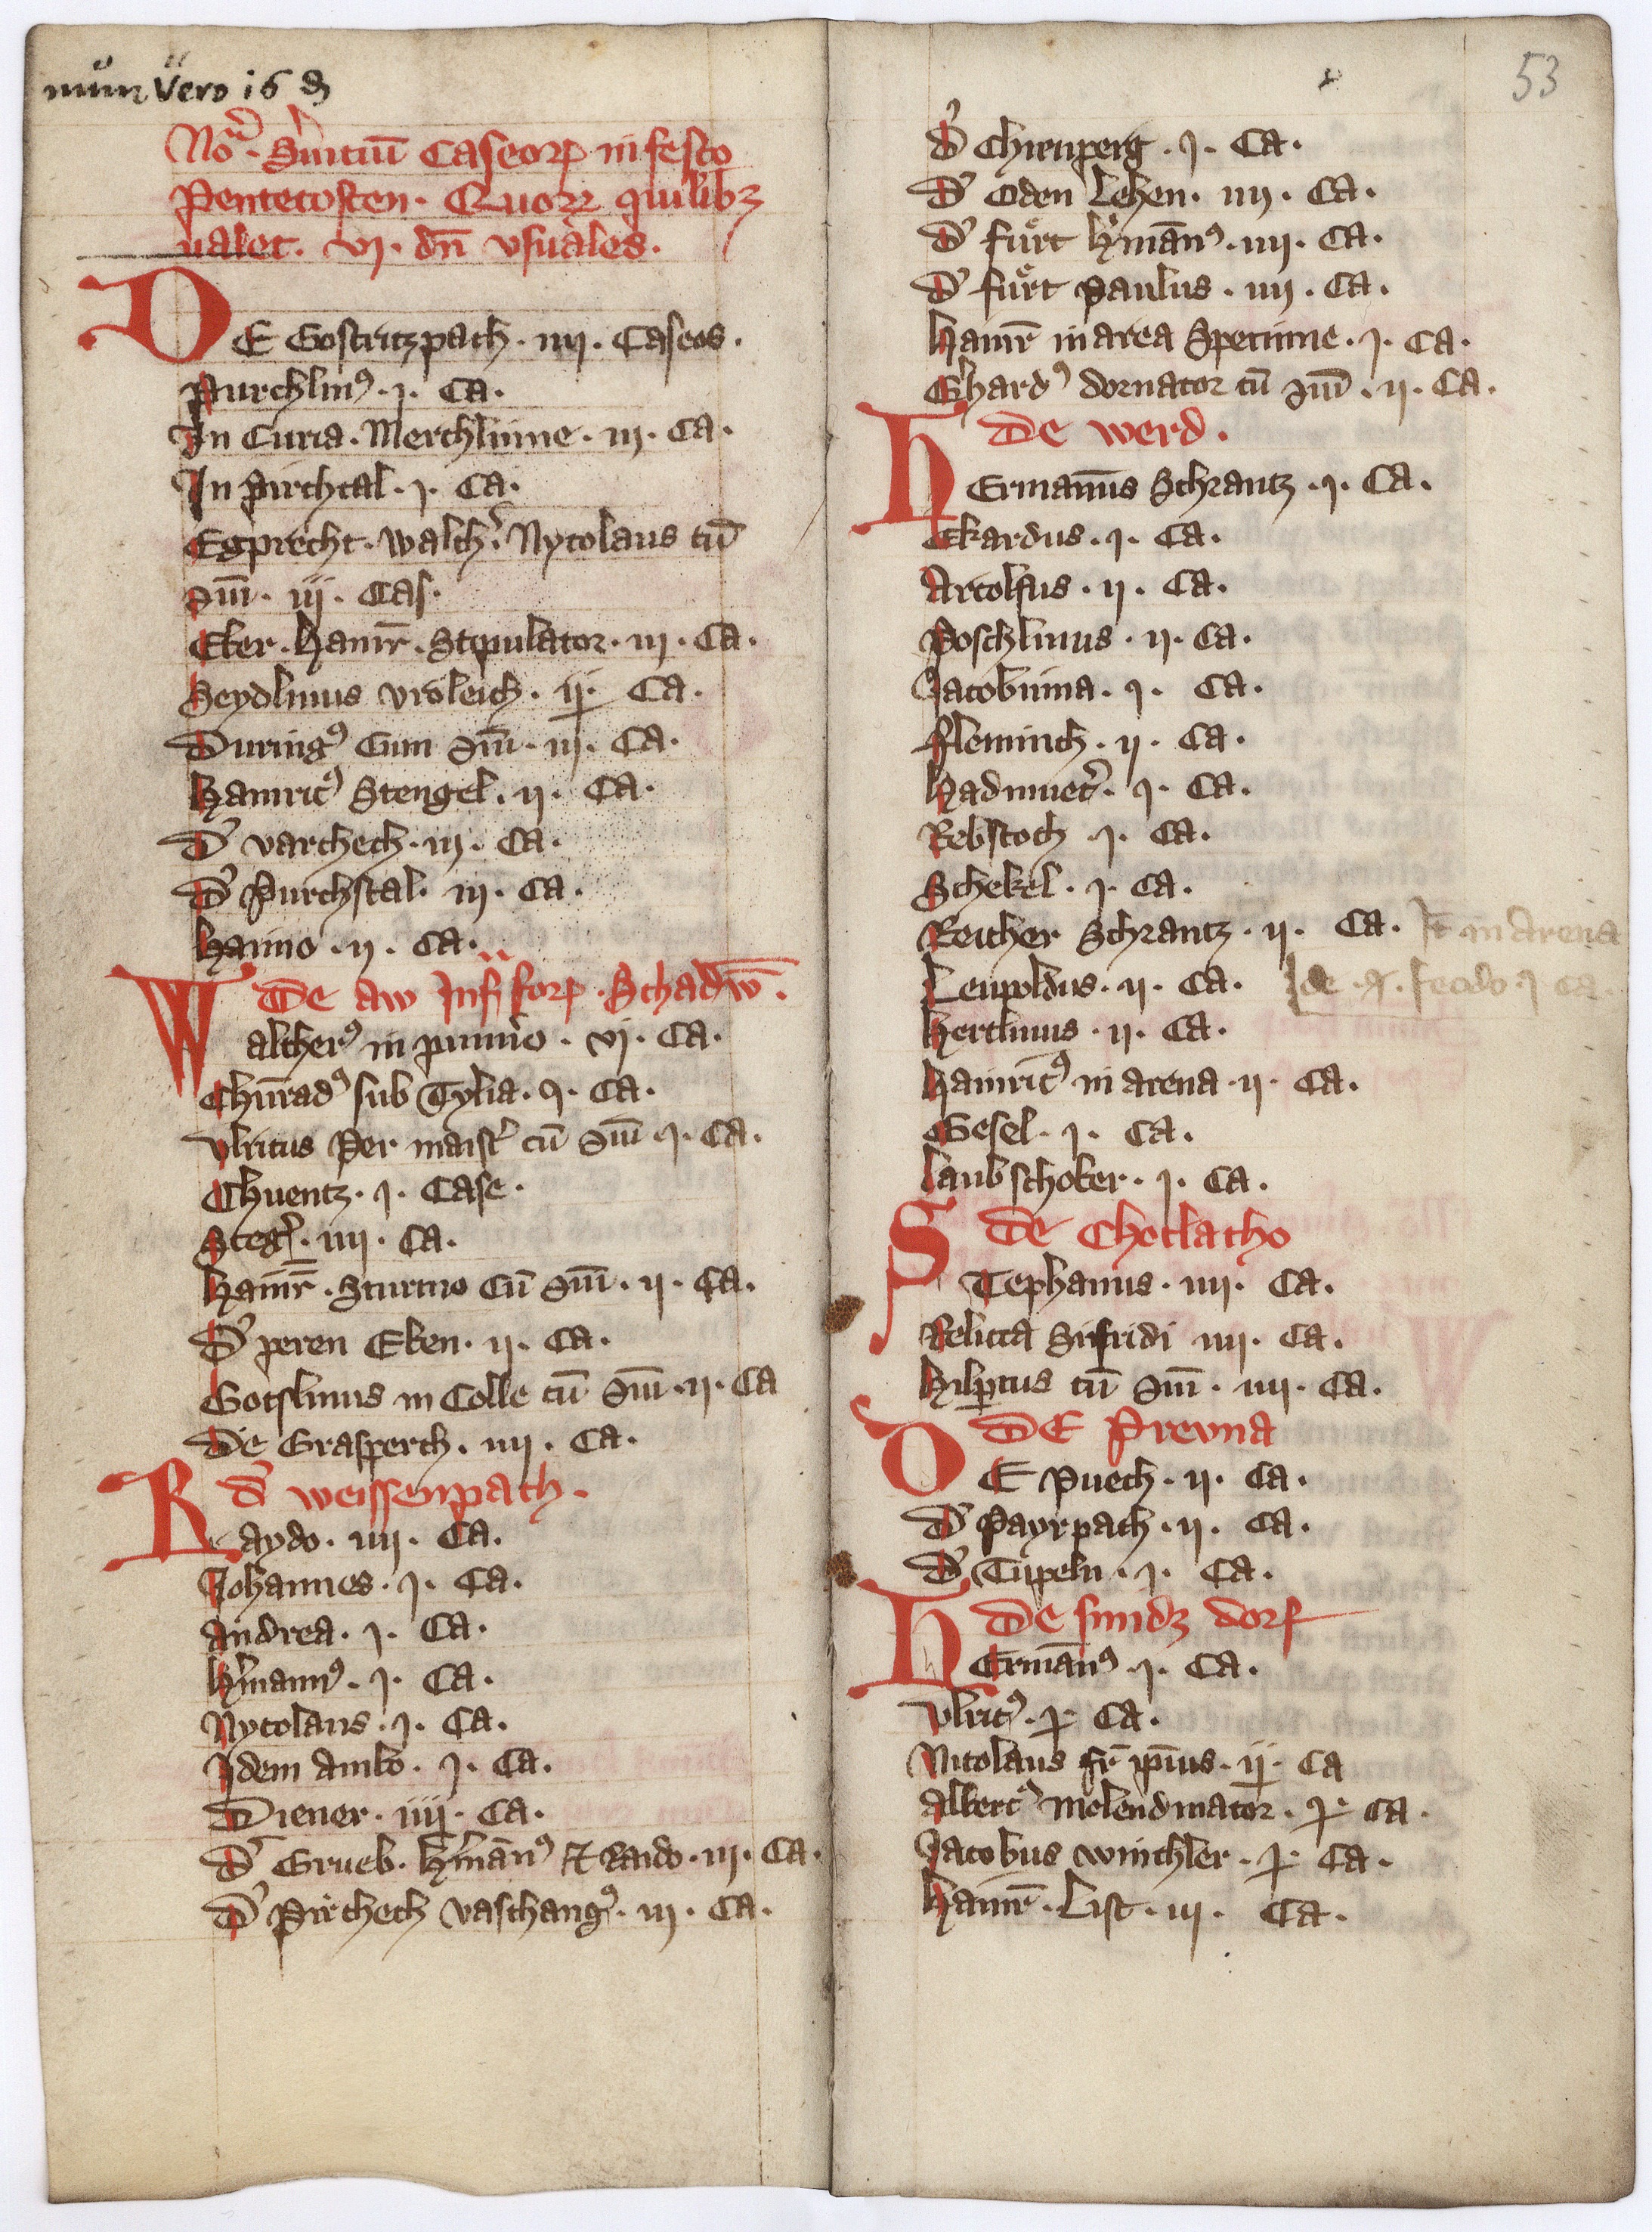 nuͦn Vero i6 ₰
No͛. S̾uiciū Caseoꝝ in festo
Pentecosten. Quoꝝ quilibꝫ
ualet. vj. dn̄ vsuales.
DE Gostritzpach. iiij. Caseos.
Purchlinꝰ. j. Ca.
In Curia. Merchlinne. iij. Ca.
In Pirchtal. j. Ca.
Egprecht. Walch̾. Nycolaus cū
suis. iij. Cas.
Eker. Hainr̄. Stipulator. iij. Ca.
Seydlinus vroleich. ij. Ca.
Duringꝰ Cum suis. iij. Ca.
Hainricꝰ Stengel. ij. Ca.
D̾ varchech. iij. Ca.
D̾ Purchstal. iij. Ca.
Haimo. ij. Ca.
De aw Inf̾ forꝝ. Schadẅ.
Waltherꝰ in pum̾io. vj. Ca.
Chunradꝰ sub Tylia. j. Ca.
Vlricus Per maist̾ cū suis. j. Ca.
Chuentz. j. Case.
Steg̾. iiij. Ca.
Hainr̄. Sturmo Cū suis. ij. Ca.
D̾ peren Eken. ij. Ca.
Gotslinus in Colle cū suis. ij. Ca
De Grasperch. iiij. Ca.
D̾ weissenpach.
Raydo. iiij. Ca.
Johannes. j. Ca.
Andrea. j. Ca.
H̾mannꝰ. j. Ca.
Nycolaus. j. Ca.
Idem ambo. j. Ca.
Diener. iiij. Ca.
D̾ Grueb. H̾mānꝰ et Raido. iij. Ca.
D̾ Pirchech vaschangꝰ. iij. Ca.
53
D̾ Chienperg. j. Ca.
D̾ Oden Lehen. iiij. Ca.
D̾ fuͤrt H̾mānꝰ. iiij. Ca.
D̾ fuͤrt Paulus. iiij. Ca.
Hainr̄ in area Specinne. j. Ca.
G̾hardꝰ dornator cū suis. ij. Ca.
De werd.
HErmannus Schrantz. j. Ca.
Ekardus. j. Ca.
Artolfus. ij. Ca.
Poschlinus. ij. Ca.
Jacobinna. j. Ca.
Fleminch. ij. Ca.
Hadmuet̾. j. Ca.
Rebstoch. j. Ca.
Schekel. j. Ca.
Reicher Schrantz. ij. Ca. It̄ in Arena
Leupoldus. ij. Ca. de feodo j ca.
Hertlinus. ij. Ca.
Hainricꝰ in arena. ij. Ca.
Gesel. j. Ca.
Laubschober. j. Ca.
De Chotlacho
STephanus. iiij. Ca.
Relicta Sifridi iiij. Ca.
Hilꝑtus cū suis. iiij. Ca.
DE Preuna
DE Puech. ij. Ca.
D̾ Payrpach. ij. Ca.
D̾ Tuͤpeln. j. Ca.
De smidz dorf
HErmānꝰ. j. Ca.
Vlricꝰ. j. Ca.
Nicolaus fr̄ ip̄ius. ij. Ca
Albert̾ Molendinator. j. Ca.
Jacobus winchler. j. Ca.
Hainr̄. List. iij. Ca.